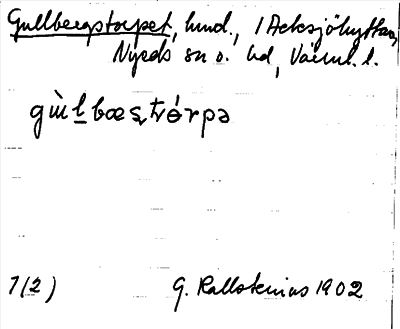 Gullbergstorpet, hmd., 1 Acksjöhyttan,
Nyeds sn o. hd, Värml. l.
gùḻbæștvǿrpə
7(2) G. Kallstenius 1902